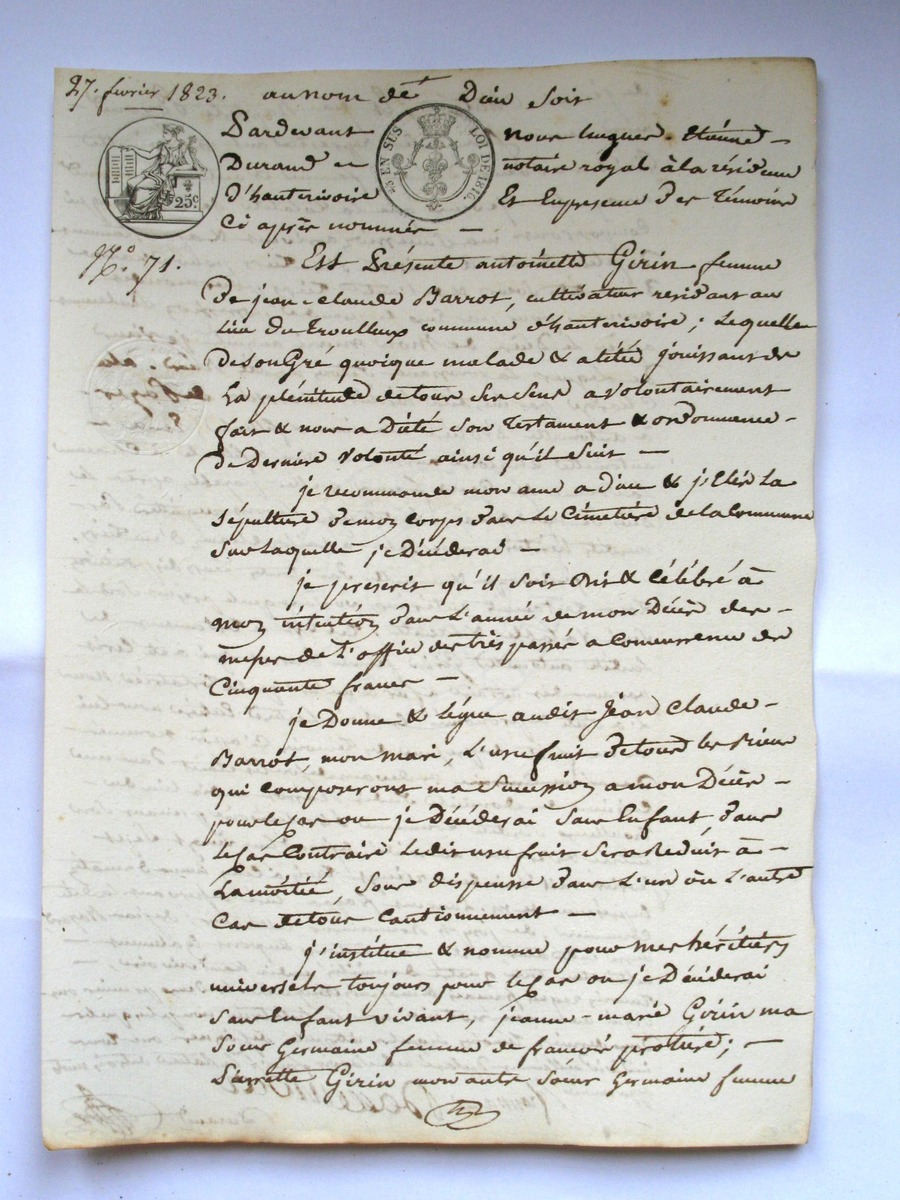 27. fevrier 1823. au nom de Dieu soit
Pardevant nous hugues Etienne -
Durand notaire royal à la résidence
d'hauterivoire Et En présence des Témoins
Ci après nommés -
EN SUS LOI DE 1816
25c
N.° 71. Est Présente antoinette Girin femme
de jean-claude Barrot, cultivateur résidant au
lieu du commune d'hauterivoire ; Laquelle
de son Gré quoique malade & alitée jouissant de
La plénitude de tous ses sens a volontairement
fait & nous a Dicté son Testament & ordonnance -
de Dernière volonté ainsi qu'il suit -
je recommande mon ame a dieu & j'Elis La
sépulture de mon corps dans Le Cimetière de la Commune
sur Laquelle je Décéderai -
je prescris qu'il soit Dit & Célébré à
mon intention dans L'année de mon Décès des -
messes de L'office des très passés a Concurrence de
Cinquante francs -
je Donne & Légue audit Jean Claude -
Barrot, mon mari, L'usufruit de tous les Biens
qui composeront ma succession a mon Décès -
pour le Cas ou je Décéderai sans Enfant dans
le Cas Contraire Ledit usufruit sera Réduit à -
La moitié, sous dispense dans L'un ou L'autre
Cas de tous Cautionnement -
j'institue & nomme pour mes héritiers
universels toujours pour le Cas ou je Décéderai
sans Enfant vivant, jeanne-marie Girin ma
soeur Germaine femme de françois protière ; -
Pierrette Girin mon autre soeur Germaine femme